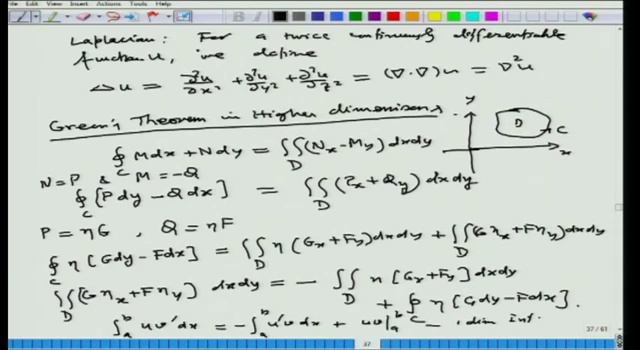 File Edit View Insert Actions Tools Help
Laplacian: For a twice continuously differentiable
function u, we define
Δu = ∂²u/∂x² + ∂²u/∂y² + ∂²u/∂z² = (∇·∇)u = ∇²u
Green's Theorem in Higher dimensions
y D C x
∮_C Mdx + Ndy = ∬_D (N_x - M_y) dxdy
N = P & M = -Q
∮_C [Pdy - Qdx] = ∬_D (P_x + Q_y) dxdy
P = ηG , Q = ηF
∮_C η[Gdy - Fdx] = ∬_D η(G_x + F_y)dxdy + ∬_D (Gη_x + Fη_y)dxdy
∬_D (Gη_x + Fη_y) dxdy = - ∬_D η[G_x + F_y]dxdy
+ ∮_C η[Gdy - Fdx].
∫_a^b uv'dx = -∫_a^b u'v dx + uv|_a^b
37 / 61
37